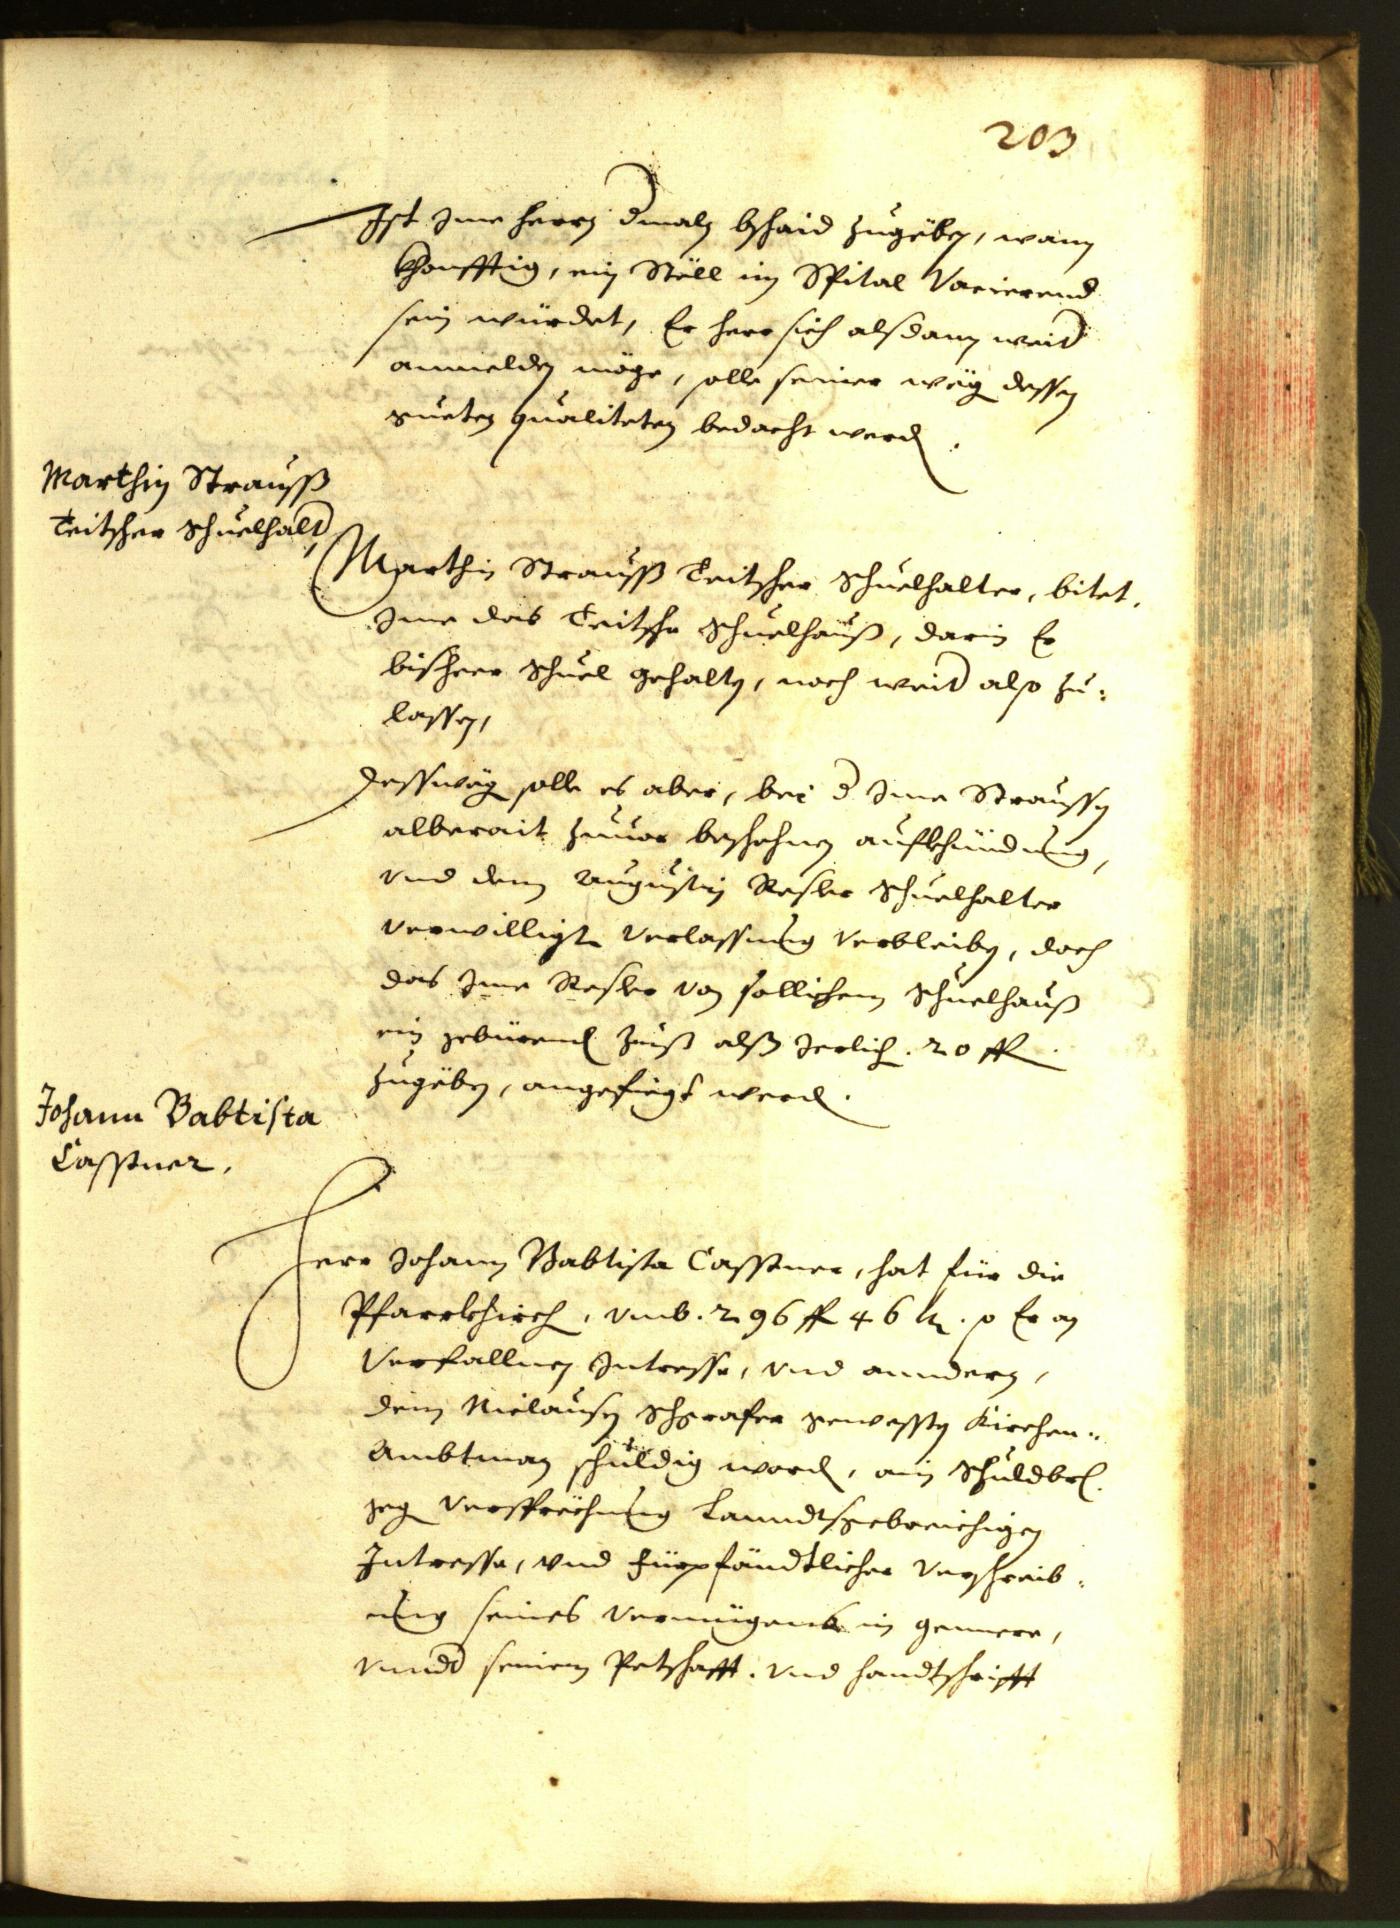 203
Ist Ime herrn dmaln bschaid zugëben, wann
khonfftig, ein Stëll im Spital Vacierend
sein würdet, Er herr sich alsdann weiter
anmelden möge, solle seiner weg dessen
gueten qualiteten bedacht werden.
Marthin Strauss
Teitscher schuelhalter
Marthin Strauss Teitscher schuelhalter, bitet,
Ime das Teitsche schuelhauß, darin Er
bisheer schuel gehalten, noch weiter also zu-
lassen,
Dessweg solle es aber, bei der Ime Straussen
alberait zuuor beschehnen aufkhündung,
vnd dem Augustin Resler schuelhalter
verwilligte verlassung verbleiben, doch
das Ime Resler von sollichem schuelhauß
ein gebürend Zinß alß Jerlich . 20 fl
zugëben, angefiegt werden.
Johann Babtista
Casstner.
Herr Johann Babtista Casstner, hat für die
Pfarrkhirch, vmb . 296 fl 46 kr. so Er an
verfallnen Intresse, vnd anndern,
dem Niclausen schgrafer gewessten Kirchen-
Ambtman schuldig worden, ain schuldbrf.
geg versprechung Lanndtsgebreichigen
Intresse, vnd fürpfändtlicher verschreib-
ung seines vermügens in gennere,
vnnder seinem Petschafft. vnd handtschrifft